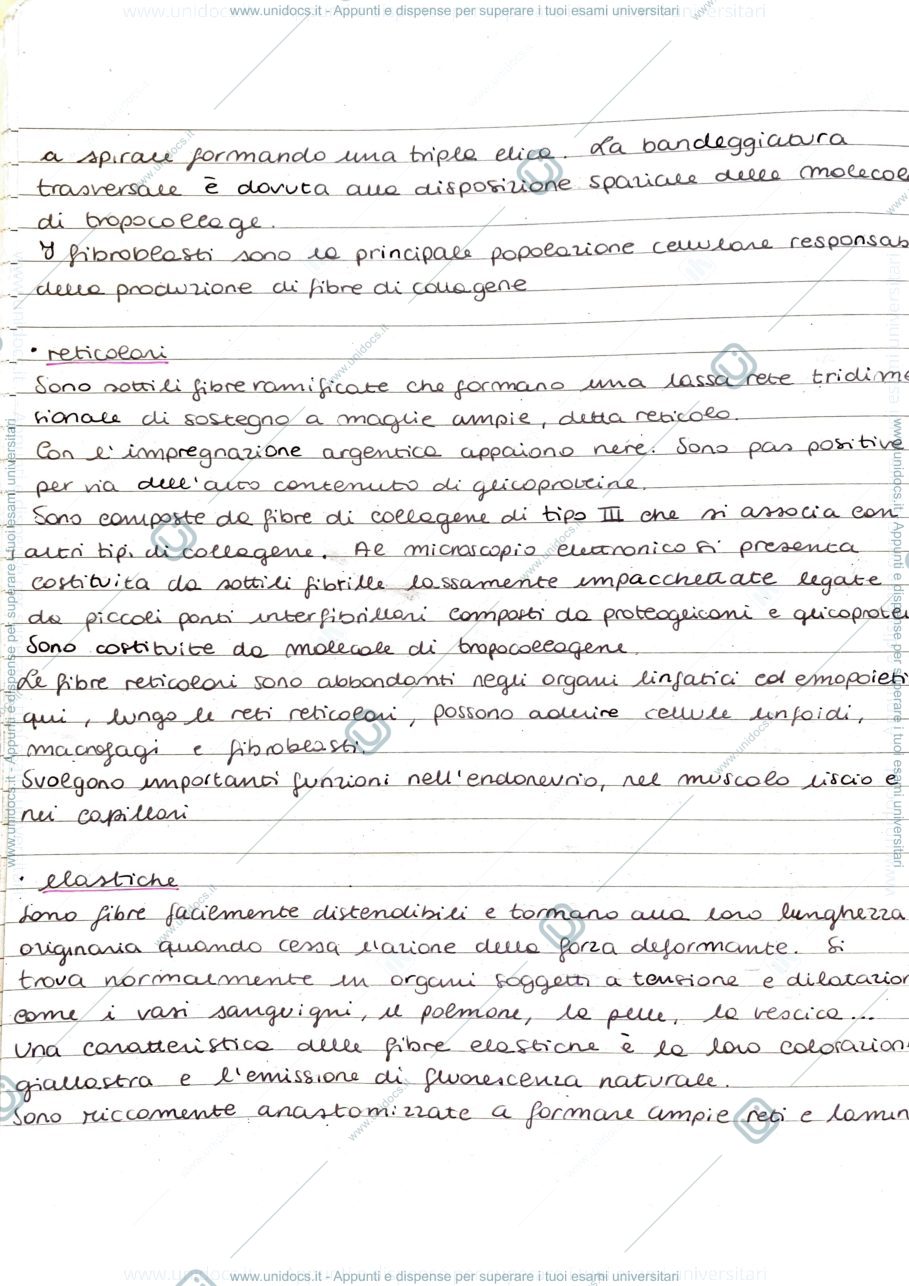 www.unidocs.it - Appunti e dispense per superare i tuoi esami universitari
a spirale formando una tripla elica. La bandeggiatura
trasversale è dovuta alla disposizione spaziale delle molecol
di tropocollage.
I fibroblasti sono la principale popolazione cellulare responsab
della produzione di fibre di collagene
• reticolari
Sono sottili fibre ramificate che formano una lassa rete tridime
sionale di sostegno a maglie ampie, detta reticolo.
Con l'impregnazione argentica appaiono nere. Sono pas positive
per via dell'alto contenuto di glicoproteine.
Sono composte da fibre di collagene di tipo III che si associa con
altri tipi di collagene. Al microscopio elettronico si presenta
costituita da sottili fibrille lassamente impacchettate legate
da piccoli ponti interfibrillari composti da proteoglicani e glicoprotei
Sono costituite da molecole di tropocollagene.
Le fibre reticolari sono abbondanti negli organi linfatici ed emopoieti
qui, lungo le reti reticolari, possono aderire cellule linfoidi,
macrofagi e fibroblasti.
Svolgono importanti funzioni nell'endonevrio, nel muscolo liscio e
nei capillari
• elastiche
Sono fibre facilmente distendibili e tornano alla loro lunghezza
originaria quando cessa l'azione della forza deformante. Si
trova normalmente in organi soggetti a tensione e dilatazion
come i vasi sanguigni, il polmone, la pelle, la vescica...
Una caratteristica delle fibre elastiche è la loro colorazion
giallastra e l'emissione di fluorescenza naturale.
Sono riccamente anastomizzate a formare ampie reti e lamin
www.unidocs.it - Appunti e dispense per superare i tuoi esami universitari
www.unidocs.it - Appunti e dispense per superare i tuoi esami universitari
www.unidocs.it - Appunti e dispense per superare i tuoi esami universitari